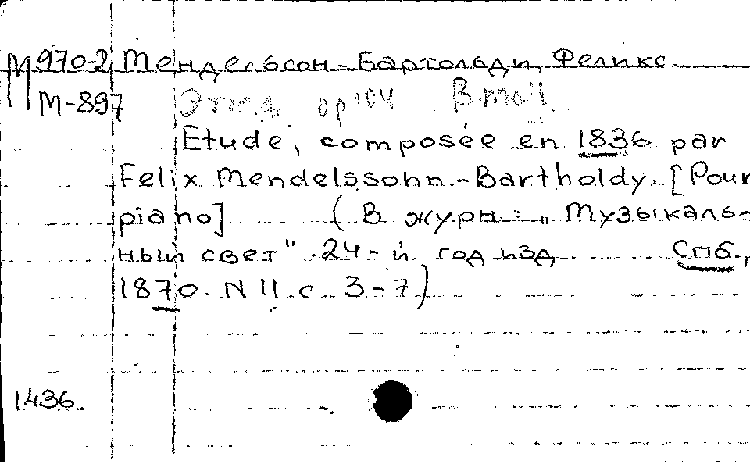 М 970-2 Мендельсон-Бартольди, Феликс.
М-897 Этюд op 104 B moll.
Etude, composée en 1836 par
Felix Mendelssohn-Bartholdy. [Pour
piano] (В журн.: "Музыкаль-
ный свет" 24-й год изд. Спб.,
1870. N 11 с. 3-7)
1436.